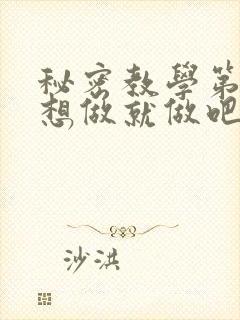 秘密教學第
想做就做吧
沙洪